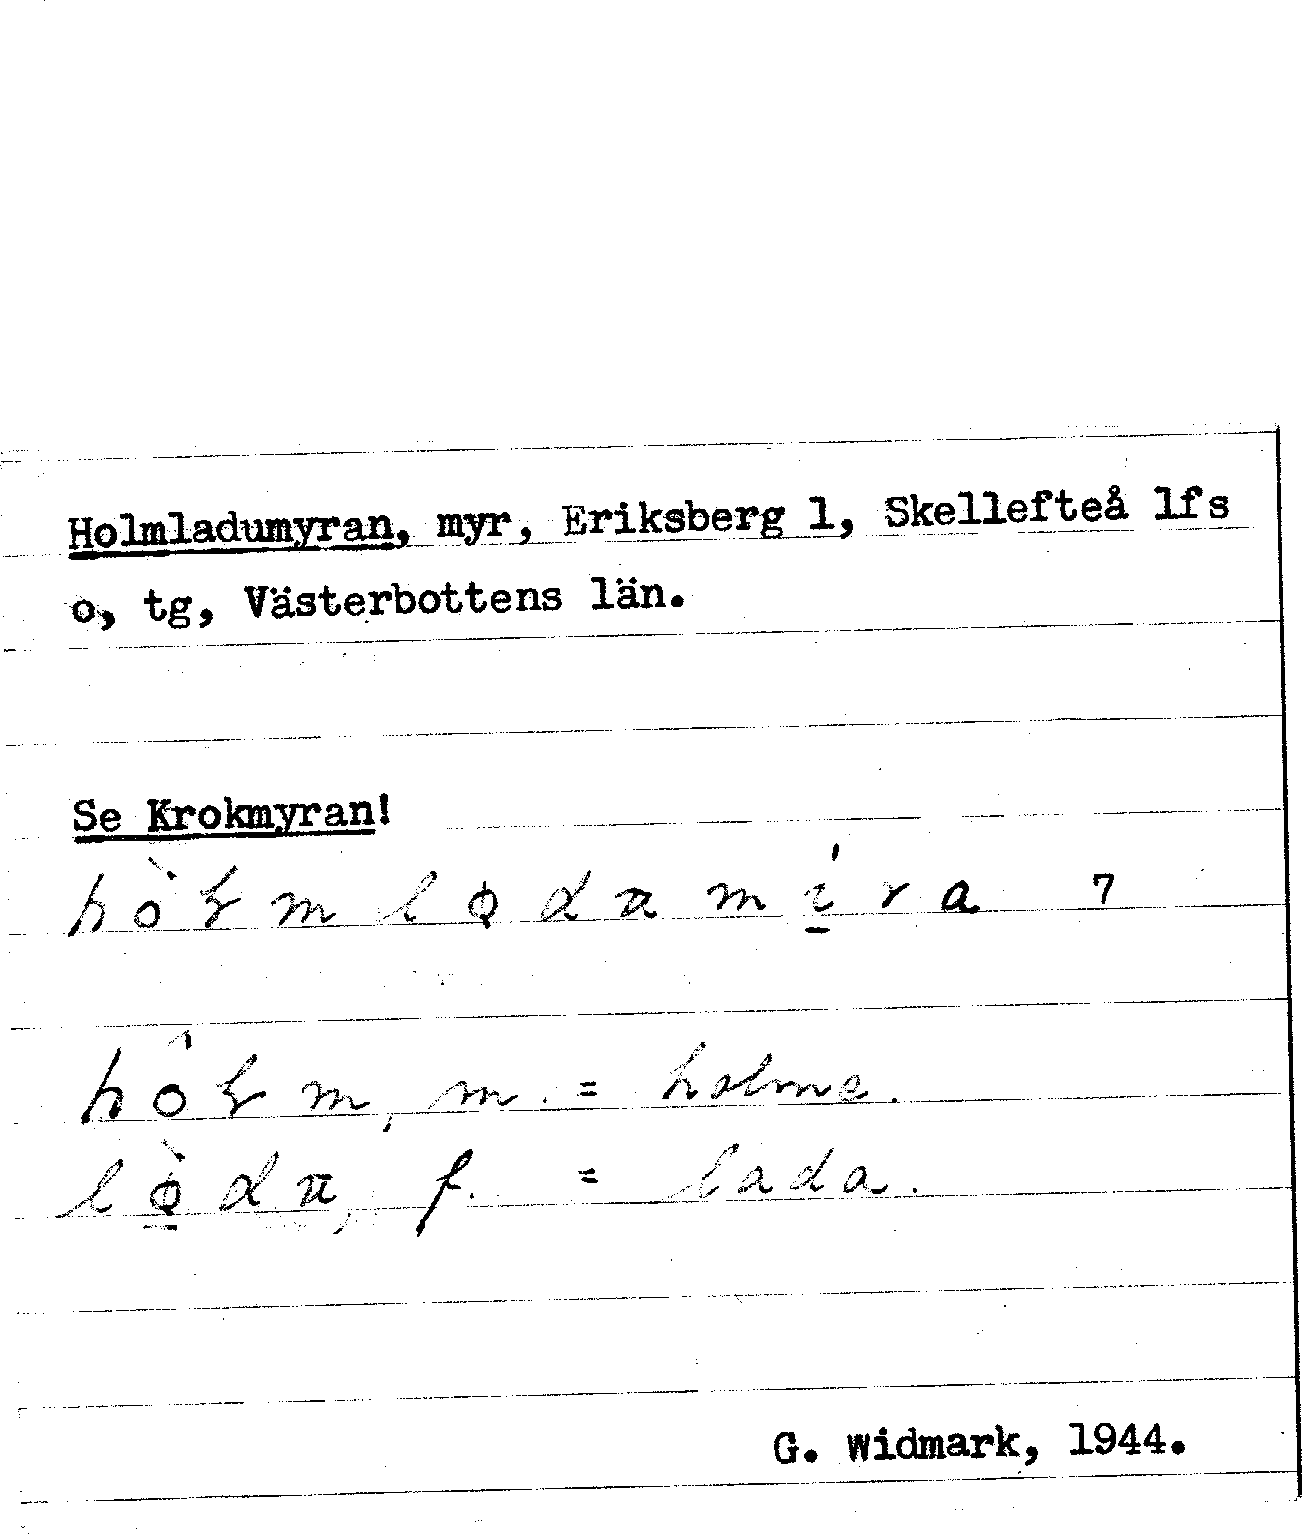 Holmladumyran, myr, Eriksberg 1, Skellefteå lfs
o, tg, Västerbottens län.
Se Krokmyran!
7
m. = holme.
f. = lada.
G. Widmark, 1944.